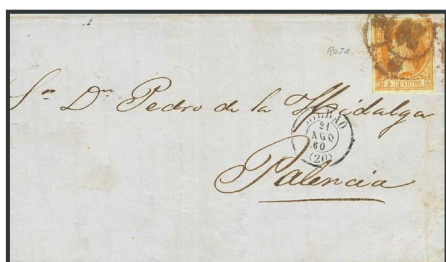 ROJA
4 CUARTOS
Sr. Dn. Pedro de la Hidalga
BILBAO
21
AGO
60
(20)
Palencia